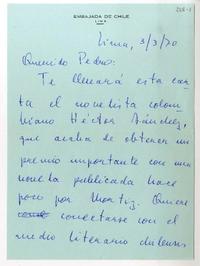 EMBAJADA DE CHILE
LIMA
Lima, 3/3/70
Querido Pedro:
Te llevará esta car-
ta el novelista colom-
biano Héctor Sánchez,
que acaba de obtener un
premio importante con una
novela publicada hace
poco por Mortiz. Quiere
conectarse con el
medio literario chileno